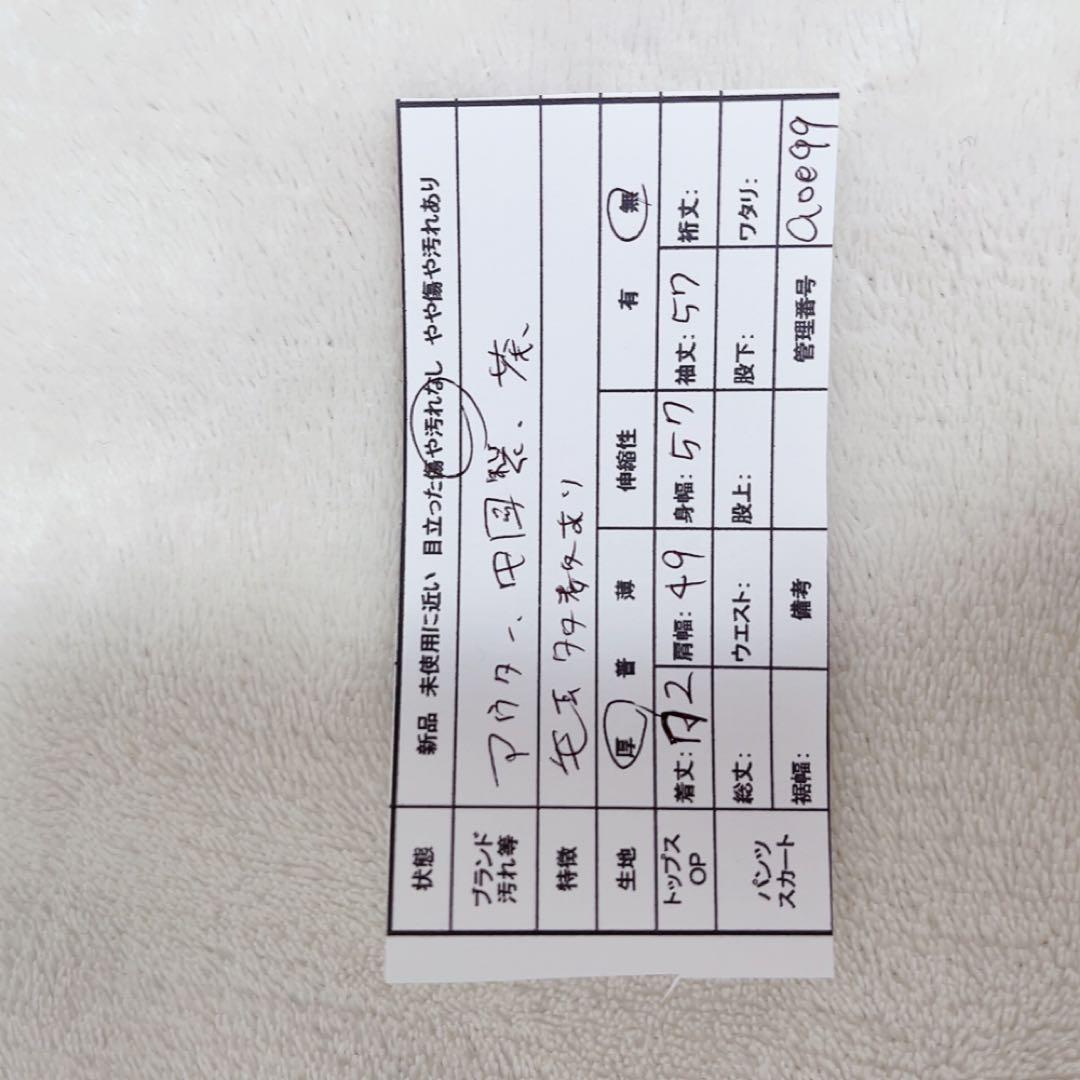 状態 新品 未使用に近い 目立った傷や汚れなし やや傷や汚れあり
ブランド 汚れ等 アウター、中国製、茶、
特徴 毛玉多数あり
生地 厚 普 薄 伸縮性 有 無
トップス OP 着丈: 72 肩幅: 49 身幅: 57 袖丈: 57 裄丈:
パンツ スカート 総丈: ウエスト: 股上: 股下: ワタリ:
裾幅: 備考 管理番号 aoe99